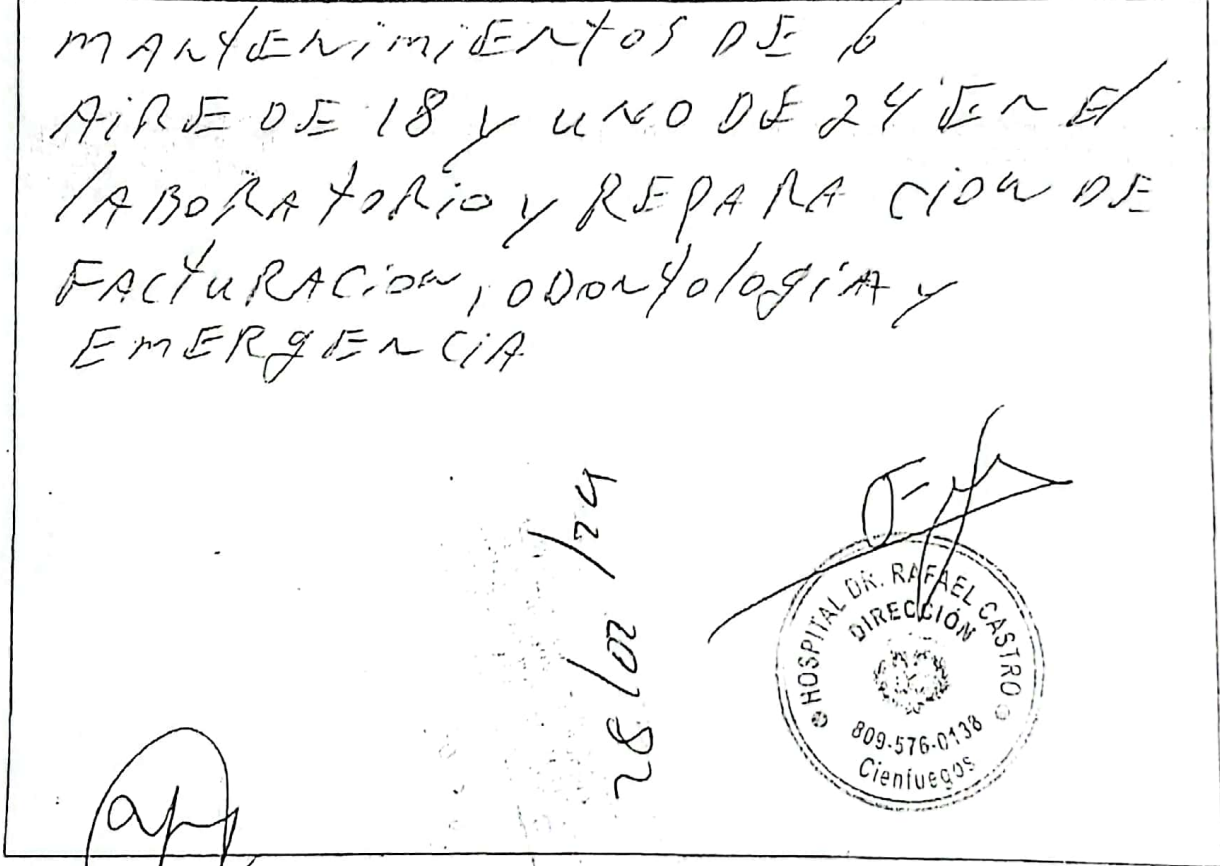 MANTENIMIENTOS DE 6
AIRE DE 18 Y UNO DE 24 EN El
lABORATORIO Y REPARACION DE
FACTURACION, ODONTologiA Y
EMERgENCIA
28/02/24
HOSPITAL DR. RAFAEL CASTRO
DIRECCIÓN
809-576-0138
Cienfuegos